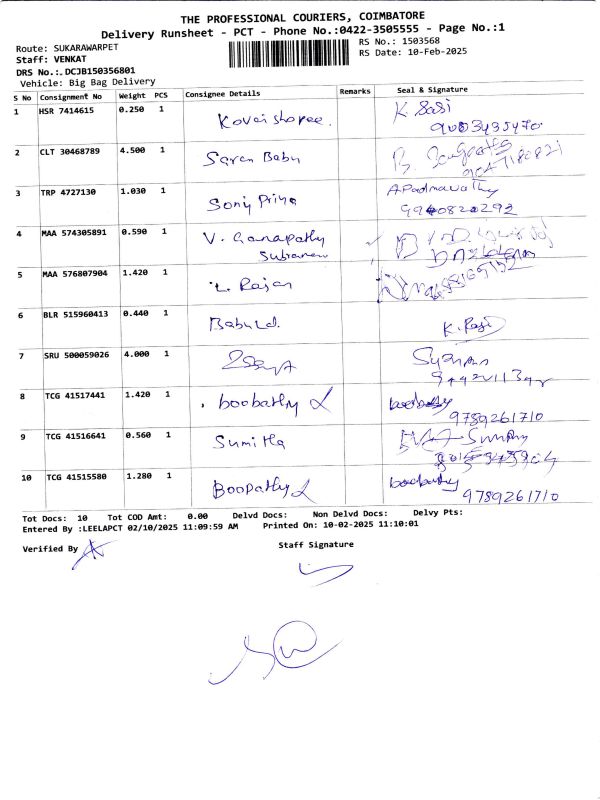 THE PROFESSIONAL COURIERS, COIMBATORE
Delivery Runsheet - PCT - Phone No.:0422-3505555 - Page No.:1
Route: SUKARAWARPET
RS No.: 1503568
Staff: VENKAT
RS Date: 10-Feb-2025
DRS No.:.DCJB150356801
Vehicle: Big Bag Delivery
S No Consignment No Weight PCS Consignee Details Remarks Seal & Signature
1 HSR 7414615 0.250 1 Kovai shopee. K. Sasi
9003435470
2 CLT 30468789 4.500 1 Saran Babu B.
3 TRP 4727130 1.030 1 Sony Priya A Padmavathy
9940820292
4 MAA 574305891 0.590 1 V. Ganapathy
5 MAA 576807904 1.420 1 Rajan
6 BLR 515960413 0.440 1 Babu Ld. K. Rasi
7 SRU 500059026 4.000 1
8 TCG 41517441 1.420 1 boobathy L boobathy
9789261710
9 TCG 41516641 0.560 1 Sumitha
10 TCG 41515580 1.280 1 Boopathy L boobathy
9789261710
Tot Docs: 10 Tot COD Amt: 0.00 Delvd Docs: Non Delvd Docs: Delvy Pts:
Entered By :LEELAPCT 02/10/2025 11:09:59 AM Printed On: 10-02-2025 11:10:01
Verified By
Staff Signature